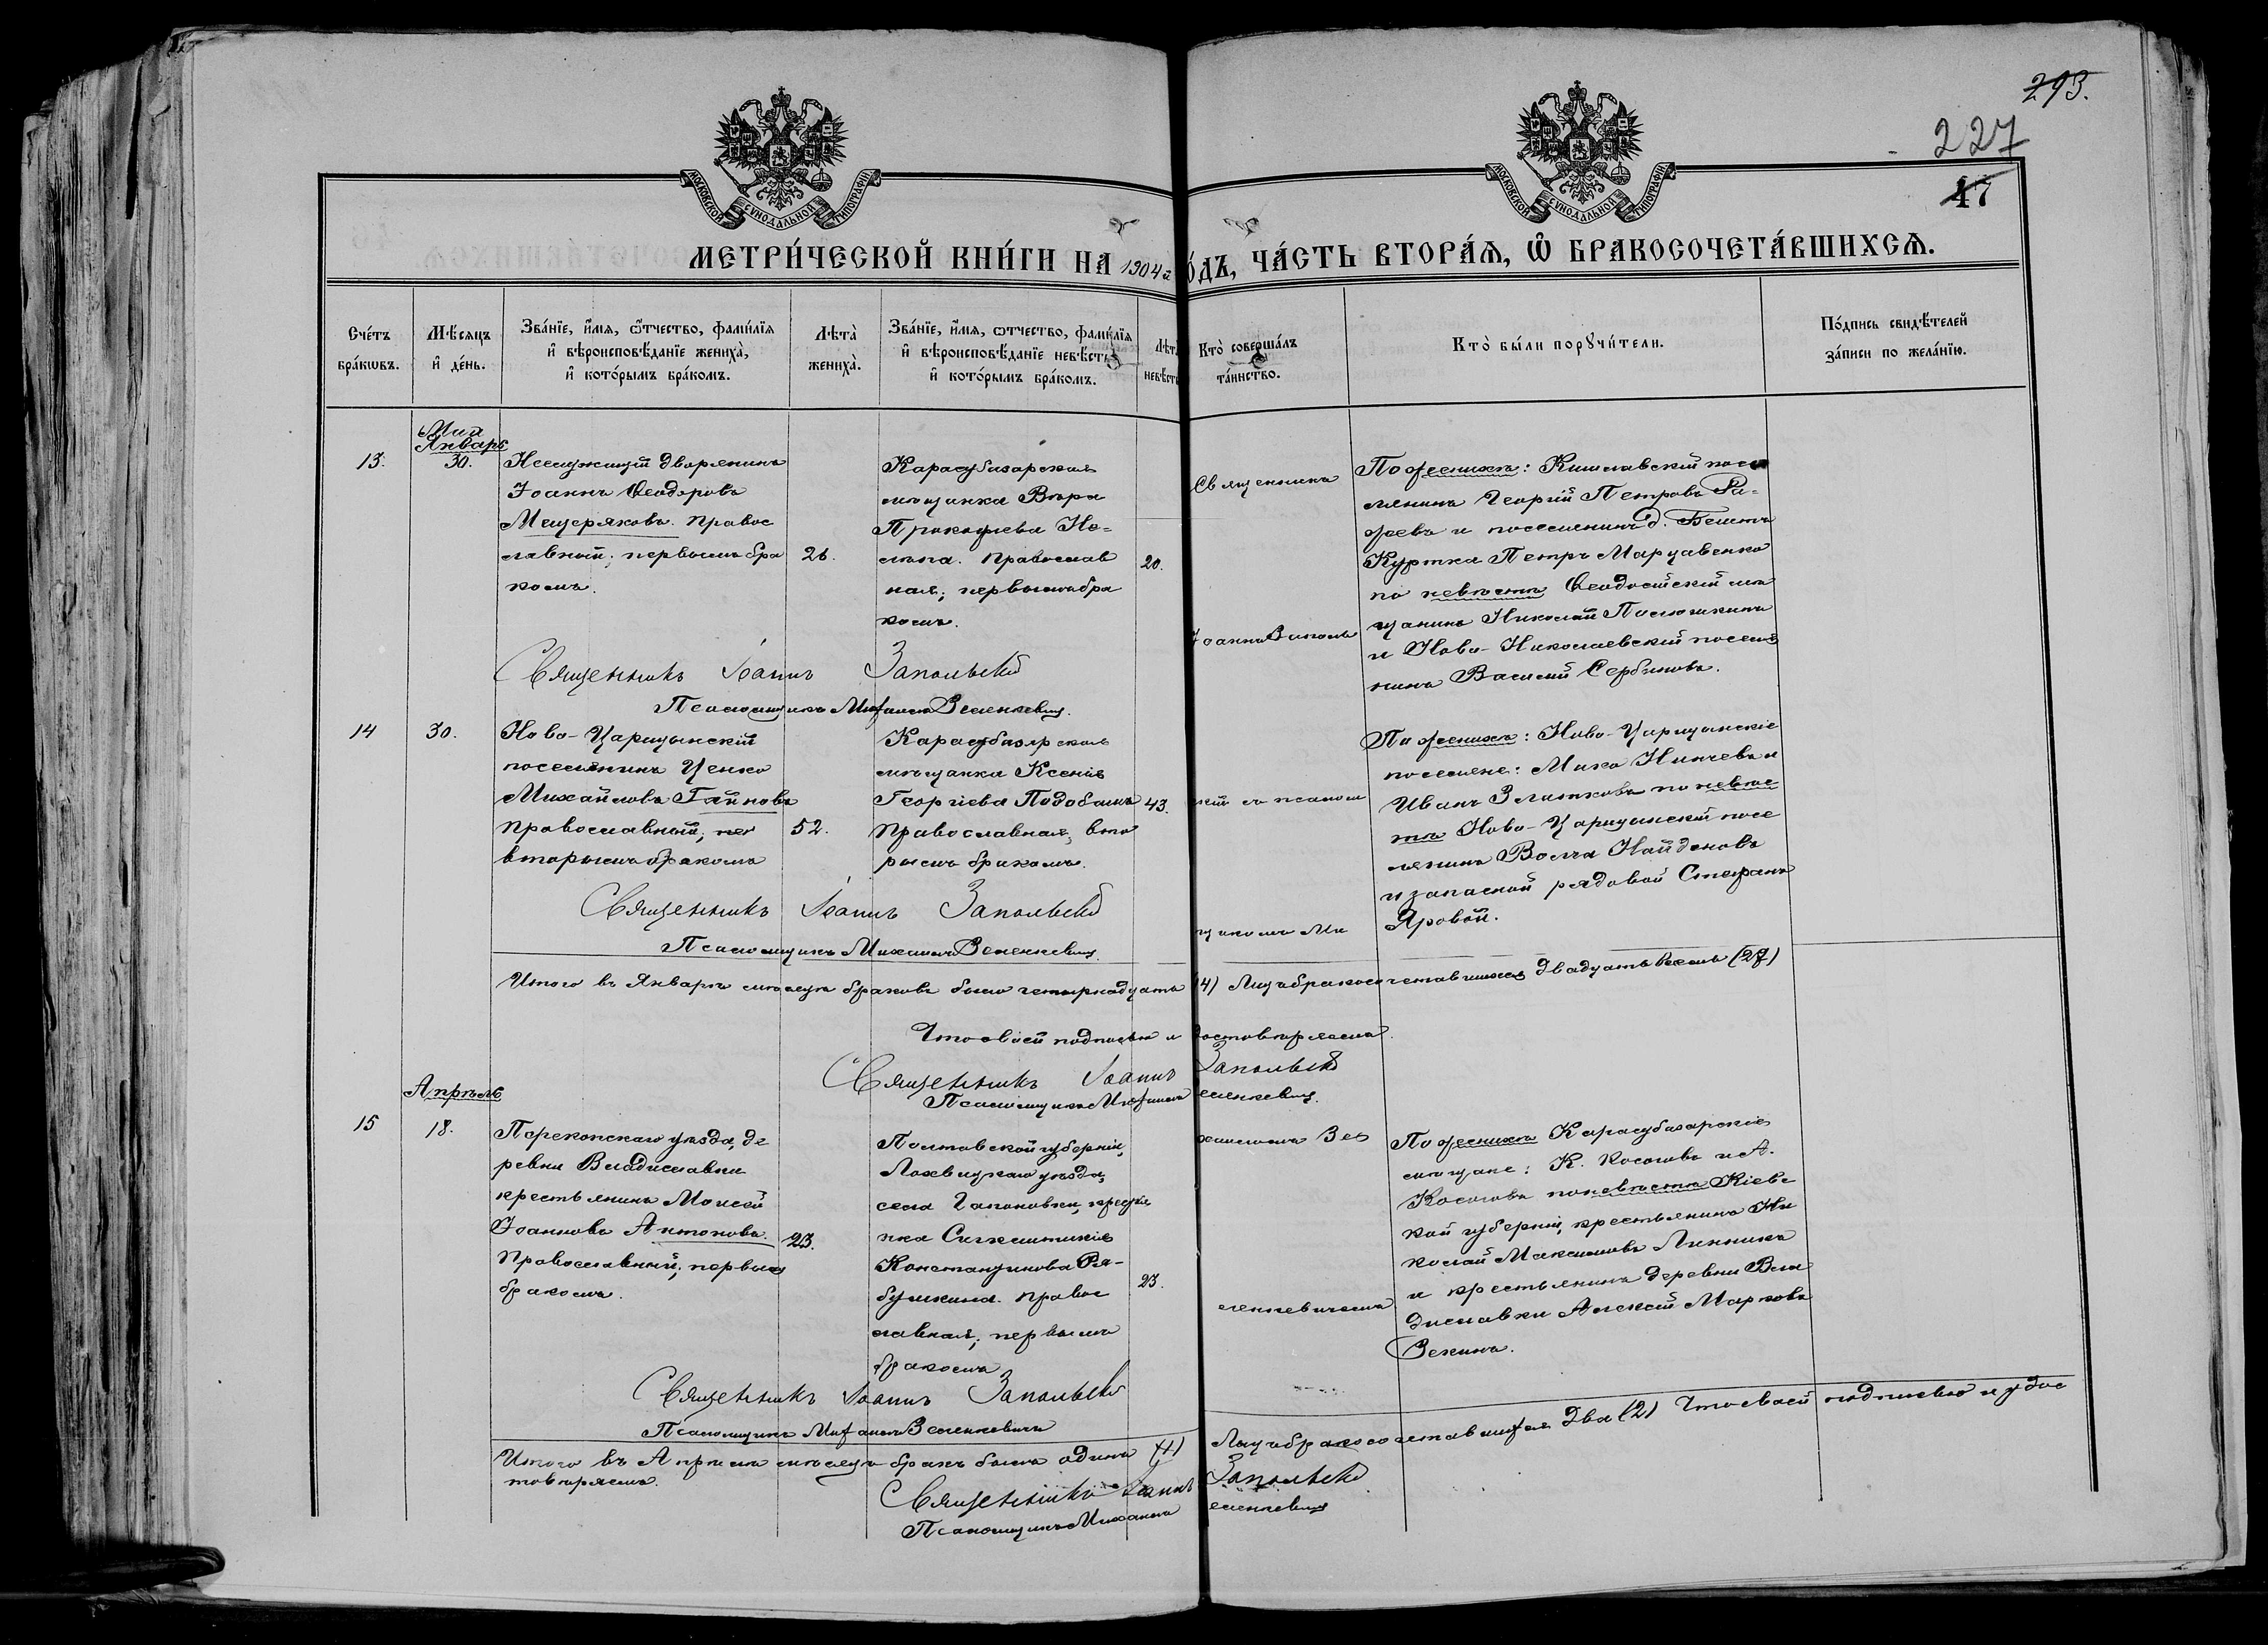 293.
227
47
МОСКОВСКОЙ СУНОДАЛЬНОЙ ТИПОГРАФІИ
МОСКОВСКОЙ СУНОДАЛЬНОЙ ТИПОГРАФІИ
МЕТРИ́ЧЕСКОЙ КНИ́ГИ НА 1904 г. ѺДЪ, ЧА́СТЬ ВТОРА́Я, Ѽ БРАКОСОЧЕТА́ВШИХСѦ.
Сче́тъ
бра́кωвъ.
Мѣ́сяцъ
и҆ де́нь.
Зва́нїе, и҆́мѧ, ѻ҆́тчество, фами́лїѧ
и҆ вѣроисповѣ́данїе жениха̀,
и҆ кото́рымъ бра́комъ.
Лѣта̀
жениха̀.
Зва́нїе, и҆́мѧ, ѻ҆́тчество, фами́лїѧ
и҆ вѣроисповѣ́данїе невѣ́сты
и҆ кото́рымъ бра́комъ.
Лѣт
невѣст
Кто̀ соверша́лъ
та́инство.
Кто̀ бы́ли порꙋчи́тели.
По́дпись свидѣ́телей
за́писи по жела́нїю.
Январь
13.
30.
Неслужащій дворянинъ
Іоаннъ Ѳеодоровъ
Мещеряковъ. правос
лавный; первымъ бра
комъ.
26.
Карасубазарская
мѣщанка Вѣра
Прокофіева
Православ
ная; первымъ бра
комъ.
20.
Священникъ
Іоаннъ Заполь
По женихѣ: Кишлавскій посе
лянинъ Георгій Петровъ Ра-
ževъ и поселянинъ д. Бешъ
Куртка Петръ Марцавенко
по невѣстѣ Ѳеодосійскій мѣ
щанинъ Николай
и Ново-Николаевскій поселя
нинъ Василій Сербиновъ.
Священникъ Іоаннъ Запольскій
Псаломщикъ Михаилъ Зеленкевичъ.
14
30.
Ново-Царицынскій
поселянинъ Ценко
Михайловъ Гайновъ
православный;
вторымъ бракомъ
52.
Карасубазарская
мѣщанка Ксенія
Георгіева
Православная; вто
рымъ бракомъ.
43.
скій съ псалом
щикомъ Ми
По женихѣ: Ново-Царицынскіе
поселяне: Мико Нинчевъ и
Иванъ Златковъ по невѣс
тѣ Ново-Царицынскій посе
лянинъ Волча Найденовъ
и запасной рядовой Стефанъ
Яровой.
Священникъ Іоаннъ Запольскій
Псаломщикъ Михаилъ Зеленкевичъ.
Итого въ Январѣ мѣсяцѣ браковъ было четырнадцать (14) Лицъ бракосочетавшихся двадцать восемь (28)
Что своей подписью и достовѣряемъ.
Священникъ Іоаннъ Запольскій
Псаломщикъ Михаилъ еленкевичъ.
Апрѣль
15
18.
Перекопскаго уѣзда, де
ревни Владиславки
крестьянинъ Моисей
Іоанновъ Антоновъ.
Православный; первымъ
бракомъ.
23.
Полтавской губерніи,
Лохвицкаго уѣзда,
села Гапоновки, крестья
нка Сигклитикія
Константинова Ря-
бушкина. правос
лавная; первымъ
бракомъ
23.
хаиломъ Зе
ленкевичемъ
По женихѣ Карасубазарскіе
мѣщане: К. Косоговъ и А.
Косоговъ по невѣстѣ Кіевс
кой губерніи, крестьянинъ Ни
колай Максимовъ Линникъ
и крестьянинъ деревни Вла
диславки Алексѣй Марковъ
Зекинъ.
Священникъ Іоаннъ Запольскій
Псаломщикъ Михаилъ Зеленкевичъ
Итого въ Апрѣлѣ мѣсяцѣ бракъ былъ одинъ (1) Лицъ бракосочетавшихся два (2) Что своей подписью и удос
товѣряемъ.
Священникъ Іоаннъ Запольскій
Псаломщикъ Михаилъ еленкевичъ